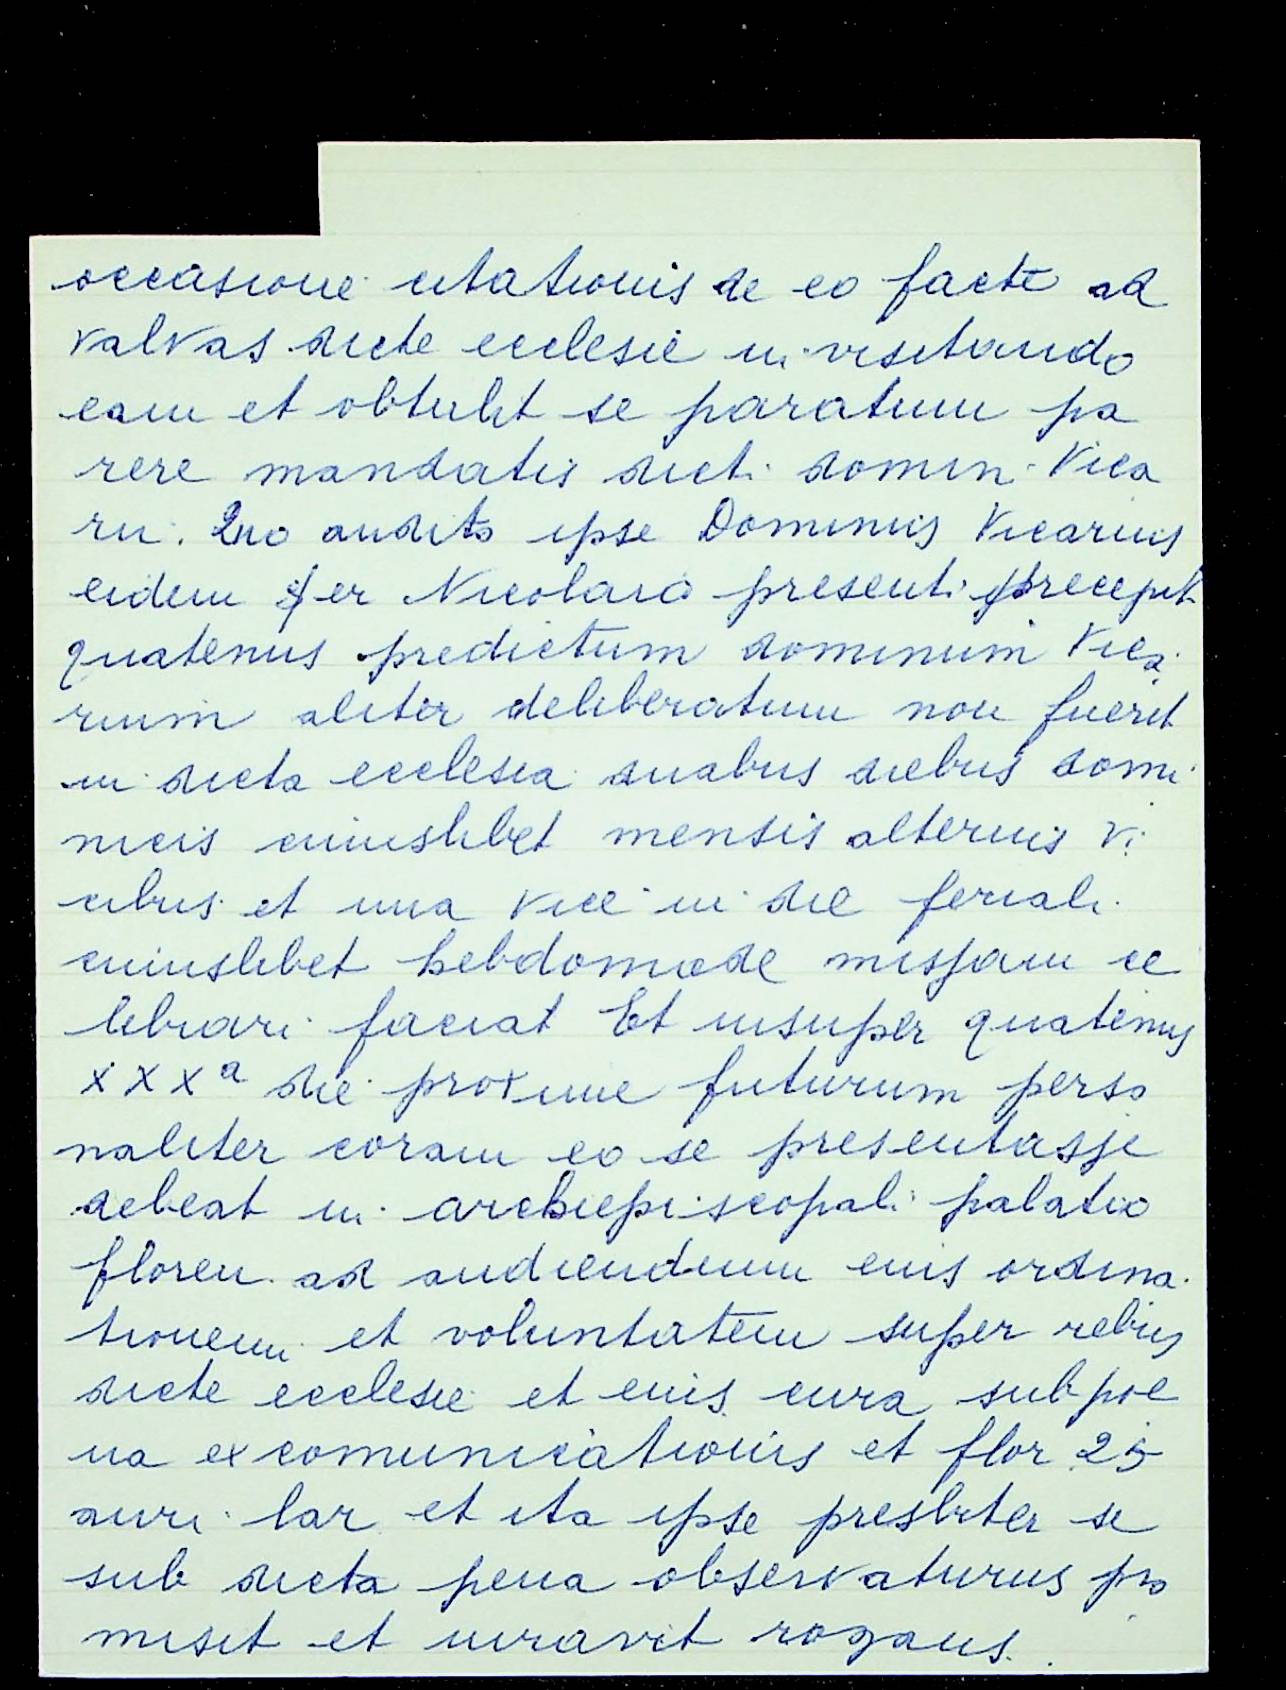 occasione citationis de eo facte ad
valvas dicte ecclesie in visitando
eam et obtulit se paratum pa
rere mandatis dicti domin. Vica
rii. Quo audito ipse Dominus Vicarius
eidem ser Nicolaio presenti precepit
quatenus predictum dominum Vica
rium aliter deliberatum non fuerit
in dicta ecclesia duabus diebus domi
nicis cuiuslibet mensis alternis vi
cibus et una vice in die feriali
cuiuslibet hebdomade missam ce
lebrari faciat Et insuper quatenus
XXXª die proxime futurum perso
naliter coram eo se presentasse
debeat in archiepiscopali palatio
floren. ad audiendum eius ordina
tionem et voluntatem super rebus
dicte ecclesie et eius cura sub poe
na excomunicationis et flor 25
auri lar et ita ipse presbiter se
sub dicta pena observaturus pro
misit et iuravit rogans.